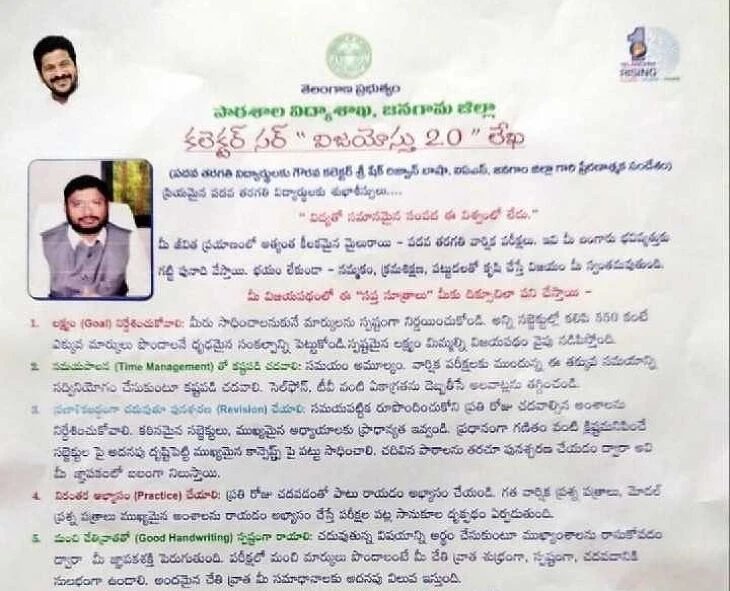 తెలంగాణ ప్రభుత్వం
RISING
పాఠశాల విద్యాశాఖ, జనగామ జిల్లా
కలెక్టర్ సర్ “ విజయోస్తు 2.0 ” లేఖ
(పదవ తరగతి విద్యార్థులకు గౌరవ కలెక్టర్ శ్రీ షేక్ రిజ్వాన్ బాషా, ఐఏఎస్, జనగాం జిల్లా గారి ప్రేరణాత్మక సందేశం)
ప్రియమైన పదవ తరగతి విద్యార్థులకు శుభాశీస్సులు....
“ విద్యతో సమానమైన సంపద ఈ విశ్వంలో లేదు.”
మీ జీవిత ప్రయాణంలో అత్యంత కీలకమైన మైలురాయి - పదవ తరగతి వార్షిక పరీక్షలు. ఇవి మీ బంగారు భవిష్యత్తుకు
గట్టి పునాది వేస్తాయి. భయం లేకుండా - నమ్మకం, క్రమశిక్షణ, పట్టుదలతో కృషి చేస్తే విజయం మీ స్వంతమవుతుంది.
మీ విజయపథంలో ఈ “సప్త సూత్రాలు” మీకు దిక్సూచిలా పని చేస్తాయి -
1. లక్ష్యం (Goal) నిర్దేశించుకోవాలి: మీరు సాధించాలనుకునే మార్కులను స్పష్టంగా నిర్ణయించుకోండి. అన్ని సబ్జెక్టుల్లో కలిపి 550 కంటే
ఎక్కువ మార్కులు పొందాలనే ధృఢమైన సంకల్పాన్ని పెట్టుకోండి.స్పష్టమైన లక్ష్యం మిమ్మల్ని విజయపథం వైపు నడిపిస్తోంది.
2. సమయపాలన (Time Management) తో కష్టపడి చదవాలి: సమయం అమూల్యం. వార్షిక పరీక్షలకు ముందున్న ఈ తక్కువ సమయాన్ని
సద్వినియోగం చేసుకుంటూ కష్టపడి చదవాలి. సెల్‌ఫోన్, టీవీ వంటి ఏకాగ్రతను దెబ్బతీసే అలవాట్లను తగ్గించండి.
3. ప్రణాళికబద్ధంగా చదువుతూ పునశ్చరణ (Revision) చేయాలి: సమయపట్టిక రూపొందించుకోని ప్రతి రోజు చదవాల్సిన అంశాలను
నిర్దేశించుకోవాలి. కఠినమైన సబ్జెక్టులు, ముఖ్యమైన అధ్యాయాలకు ప్రాధాన్యత ఇవ్వండి. ప్రధానంగా గణితం వంటి క్లిష్టమనిపించే
సబ్జెక్టుల పై అదనపు దృష్టిపెట్టి ముఖ్యమైన కాన్సెప్ట్స్ పై పట్టు సాధించాలి. చదివిన పాఠాలను తరచూ పునశ్చరణ చేయడం ద్వారా అవి
మీ జ్ఞాపకంలో బలంగా నిలుస్తాయి.
4. నిరంతర అభ్యాసం (Practice) చేయాలి: ప్రతి రోజు చదవడంతో పాటు రాయడం అభ్యాసం చేయండి. గత వార్షిక ప్రశ్న పత్రాలు, మోడల్
ప్రశ్న పత్రాలు ముఖ్యమైన అంశాలను రాయడం అభ్యాసం చేస్తే పరీక్షల పట్ల సానుకూల దృక్పథం ఏర్పడుతుంది.
5. మంచి చేతివ్రాతతో (Good Handwriting) స్పష్టంగా రాయాలి: చదువుతున్న విషయాన్ని అర్థం చేసుకుంటూ ముఖ్యాంశాలను రాసుకోవడం
ద్వారా మీ జ్ఞాపకశక్తి పెరుగుతుంది. పరీక్షలో మంచి మార్కులు పొందాలంటే మీ చేతి వ్రాత శుభ్రంగా, స్పష్టంగా, చదవడానికి
సులభంగా ఉండాలి. అందమైన చేతి వ్రాత మీ సమాధానాలకు అదనపు విలువ ఇస్తుంది.